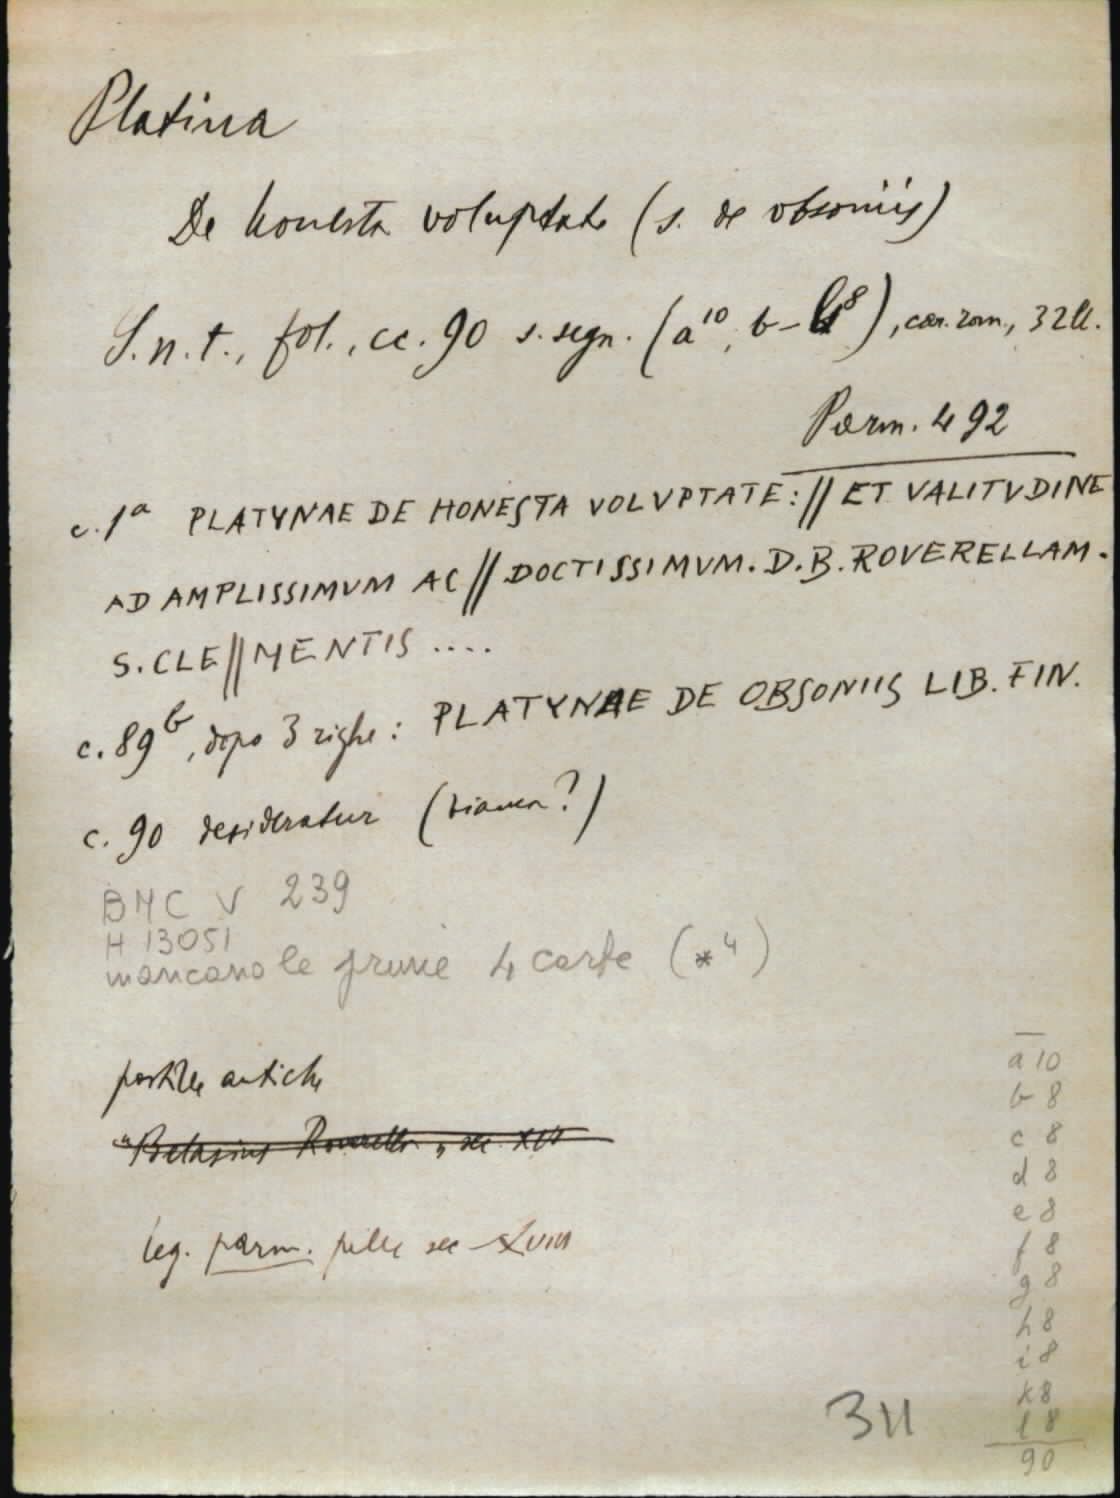 Platina
De honesta voluptate (s. de obsoniis)
S.n.t., fol., cc. 90 s. segn. (a¹⁰, b-l⁸), car. rom., 32 ll.
Parm. 492
c. 1ᵃ PLATYNAE DE HONESTA VOLVPTATE: // ET VALITVDINE
AD AMPLISSIMVM AC // DOCTISSIMVM. D. B. ROVERELLAM.
S. CLE//MENTIS ....
c. 89ᵇ, dopo 3 righe: PLATYNAE DE OBSONIIS LIB. FIN.
c. 90 desideratur (bianca?)
BMC V 239
H 13051
mancano le prime 4 carte (*⁴)
postille antiche
"Roverella" sec XVI
leg. parm. pelle sec XVIII
a 10
b 8
c 8
d 8
e 8
f 8
g 8
h 8
i 8
k 8
l 8
90
311